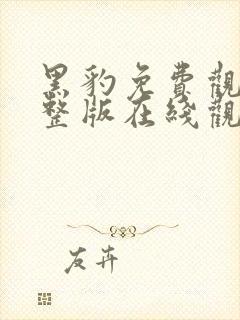 黑豹免費觀
整版在綫觀
友卉